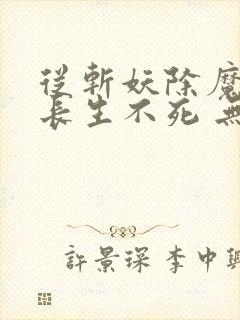 從斬妖除魔
長生不死 無
許景琛 李中興